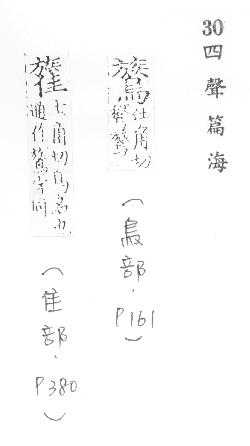 30
四聲篇海
鷟
仕角切
鸑鷟
(鳥部.P161)
士角切鳥名亦
通作鷟義同
(隹部.P380)